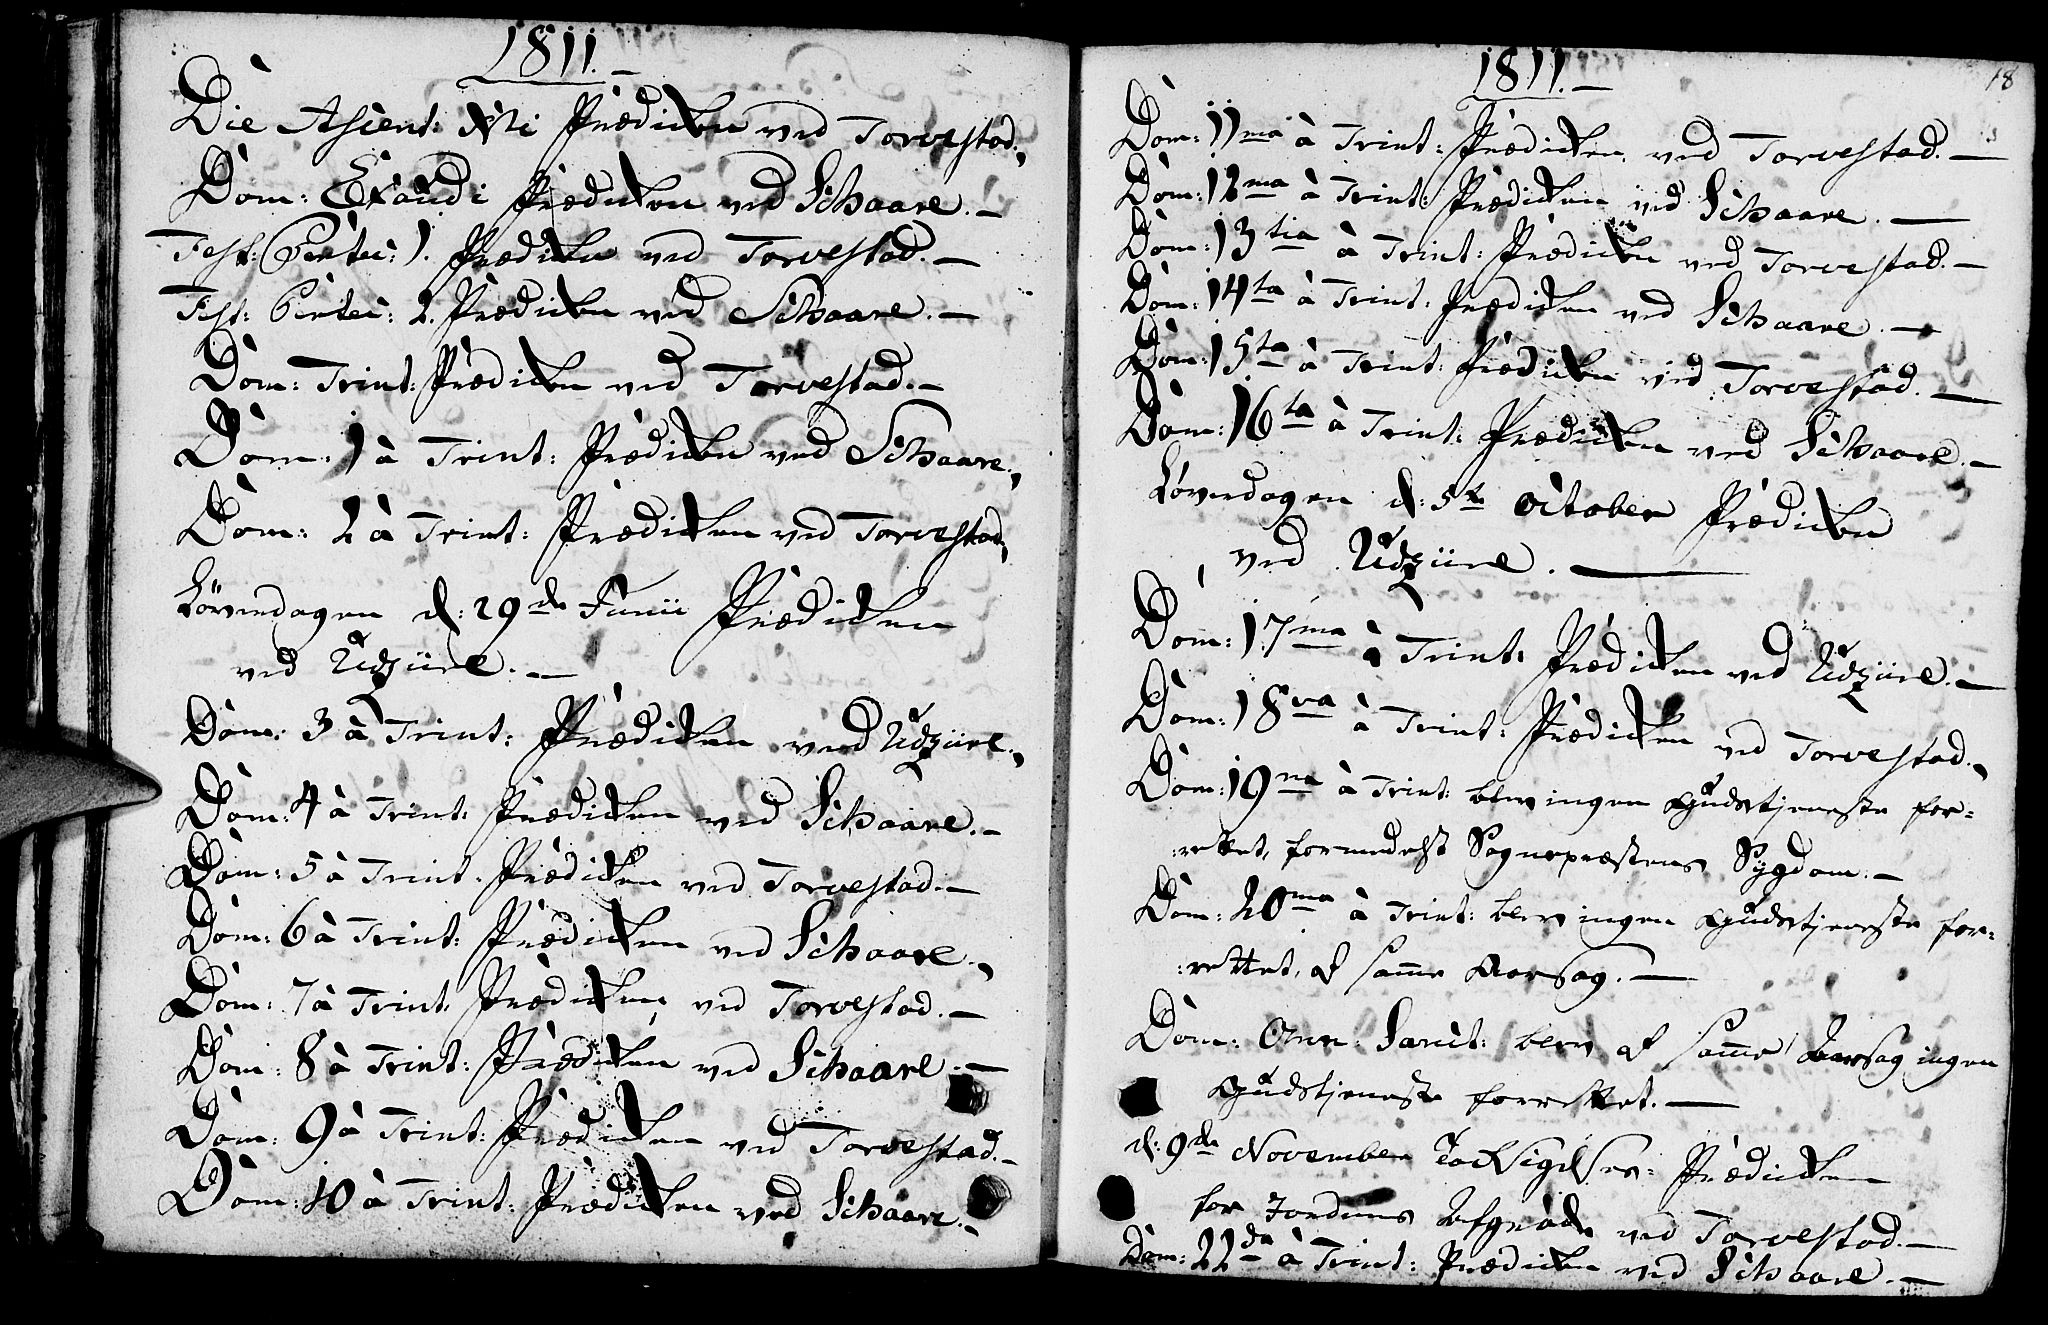 1811.
Die Ascent: Xsti Prædicken ved Torvestad.
Dom: Exaudi Prædicken ved Schaare.
Fest: Pentec: 1. Prædicken ved Torvestad.
Fest: Pentec: 2. Prædicken ved Schaare.
Dom: Trint: Prædicken ved Torvestad.
Dom: 1 à Trint: Prædicken ved Schaare.
Dom: 2 à Trint: Prædicken ved Torvestad.
Löverdagen d: 29de Junii Prædicken
ved Udzüre.
Dom: 3 à Trint: Prædicken ved Udzüre.
Dom: 4 à Trint: Prædicken ved Schaare.
Dom: 5 à Trint: Prædicken ved Torvestad.
Dom: 6 à Trint: Prædicken ved Schaare.
Dom: 7 à Trint: Prædicken ved Torvestad.
Dom: 8 à Trint: Prædicken ved Schaare.
Dom: 9 à Trint: Prædicken ved Torvestad.
Dom: 10 à Trint: Prædicken ved Schaare.
1811.
18
Dom: 11ma à Trint: Prædicken ved Torvestad.
Dom: 12ma à Trint: Prædicken ved Schaare.
Dom: 13tia à Trint: Prædicken ved Torvestad.
Dom: 14ta à Trint: Prædicken ved Schaare.
Dom: 15ta à Trint: Prædicken ved Torvestad.
Dom: 16ta à Trint: Prædicken ved Schaare.
Løverdagen d: 5te October Prædicken
ved Udzüre.
Dom: 17ma à Trint: Prædicken ved Udzüre.
Dom: 18va à Trint: Prædicken ved Torvestad.
Dom: 19na à Trint: blev ingen Gudstjeneste for=
:rettet, formedelst Sognepræstens Sygdom.
Dom: 20ma à Trint: blev ingen Gudstjeneste for=
:rettet, af samme Aarsag.
Dom: Omn: Sanct: blev af samme Aarsag ingen
Gudstjeneste forrettet.
d: 9de November Tacksigelses: Prædicken
for Jordens Afgrøde ved Torvestad.
Dom: 22da à Trint: Prædicken ved Schaare.